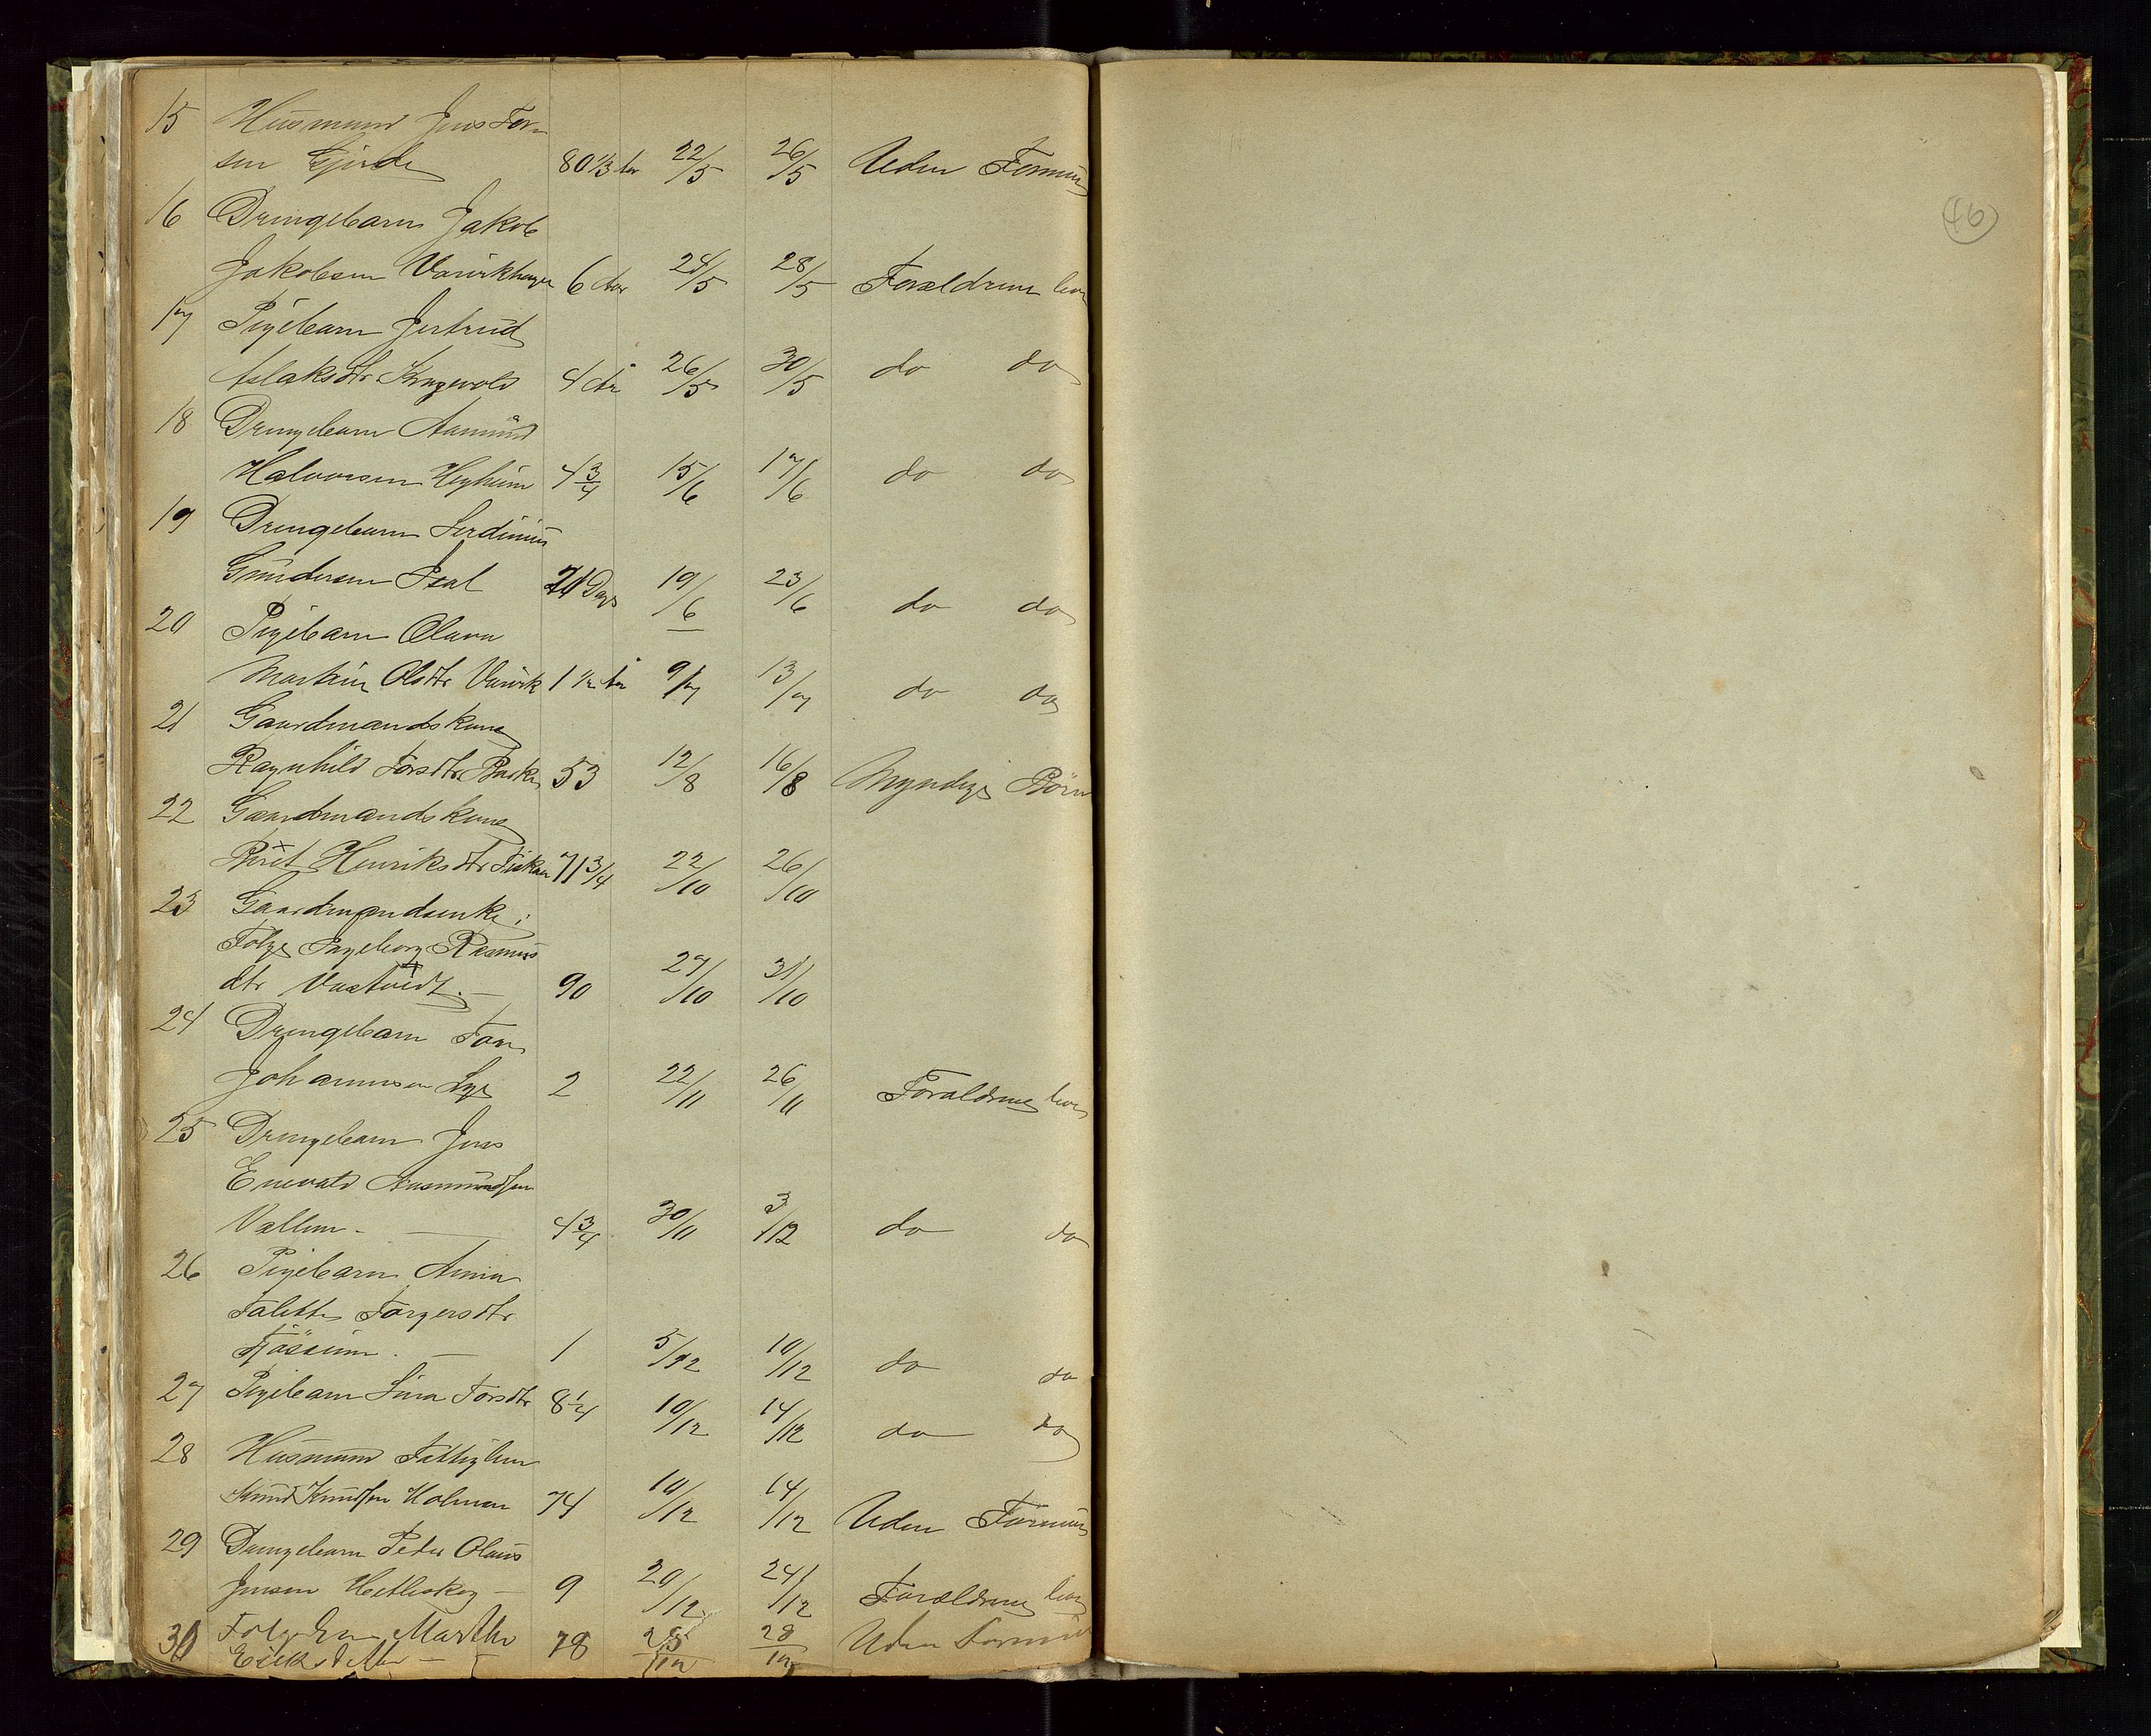 15 Husmand Jens Tor-
sen Gjerde 80 1/3 Aar 22/5 26/5 Uden Formue
16 Drengebarn Jakob
Jakobsen 6 Aar 24/5 28/5 Forældrene lever
17 Pigebarn Jertrud
Aslaksdtr 4 År 26/5 30/5 do do
18 Drengebarn Aamund
Halvorsen Høyheim 4 3/4 15/6 17/6 do do
19 Drengebarn Serdinius
Gundersen 21 Dage 19/6 23/6 do do
20 Pigebarn Olava
Martine Olsdtr Vasvik 1 1/2 År 9/7 13/7 do do
21 Gaardmandskone
Ragnhild Torsdtr Bakke 53 12/8 16/8 Myndige Börn
22 Gaardmandskone
Berit Henriksdtr 71 3/4 22/10 26/10
23 Gaardmandsenke i
Folge Ingeborg Rasmus
dtr Vastveidt. 90 27/10 31/10
24 Drengebarn Tore
Johannesen Lyse 2 22/11 26/11 Forældrene lever
25 Drengebarn Jens
Enevald Aasmundsen
Vallem - 4 3/4 30/11 3/12 do do
26 Pigebarn Anna
Talette Torgersdtr
Tjössem. 1 5/12 10/12 do do
27 Pigebarn Sina Torsdtr 8 1/4 10/12 14/12 do do
28 Husmand Fattiglem
Knud Knudsen Holmen 74 10/12 14/12 Uden Formue
29 Drengebarn Peder Olaus
Jensen Hetleskog - 9 20/12 24/12 Forældrene lever
30 Folge Enke Marthe
Eriksdatter - 78 25/12 28/12 Uden Formue
46